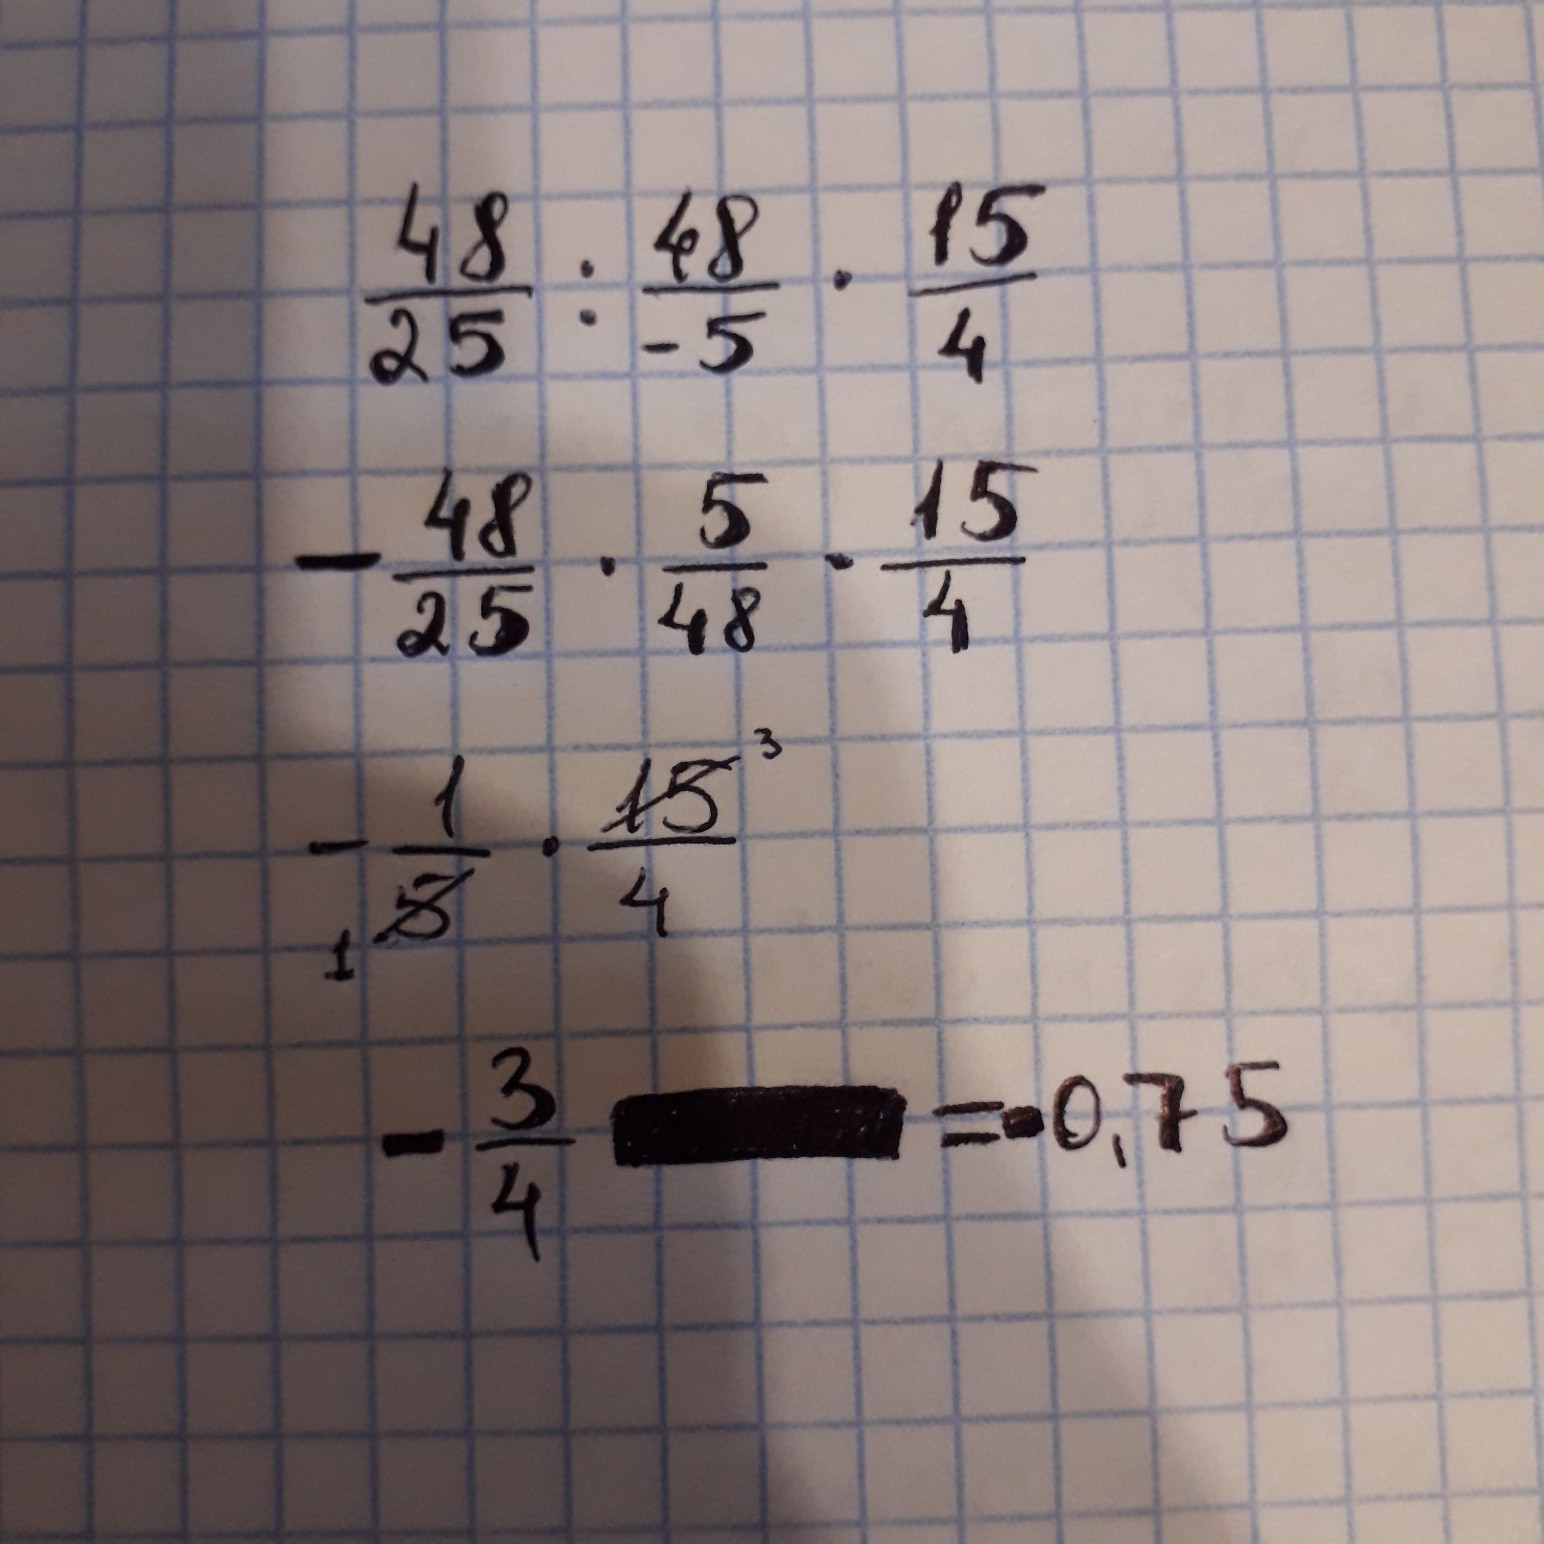 48/25 : 48/-5 · 15/4
- 48/25 · 5/48 · 15/4
- 1/5 1 · 15/4 3
- 3/4 = -0,75